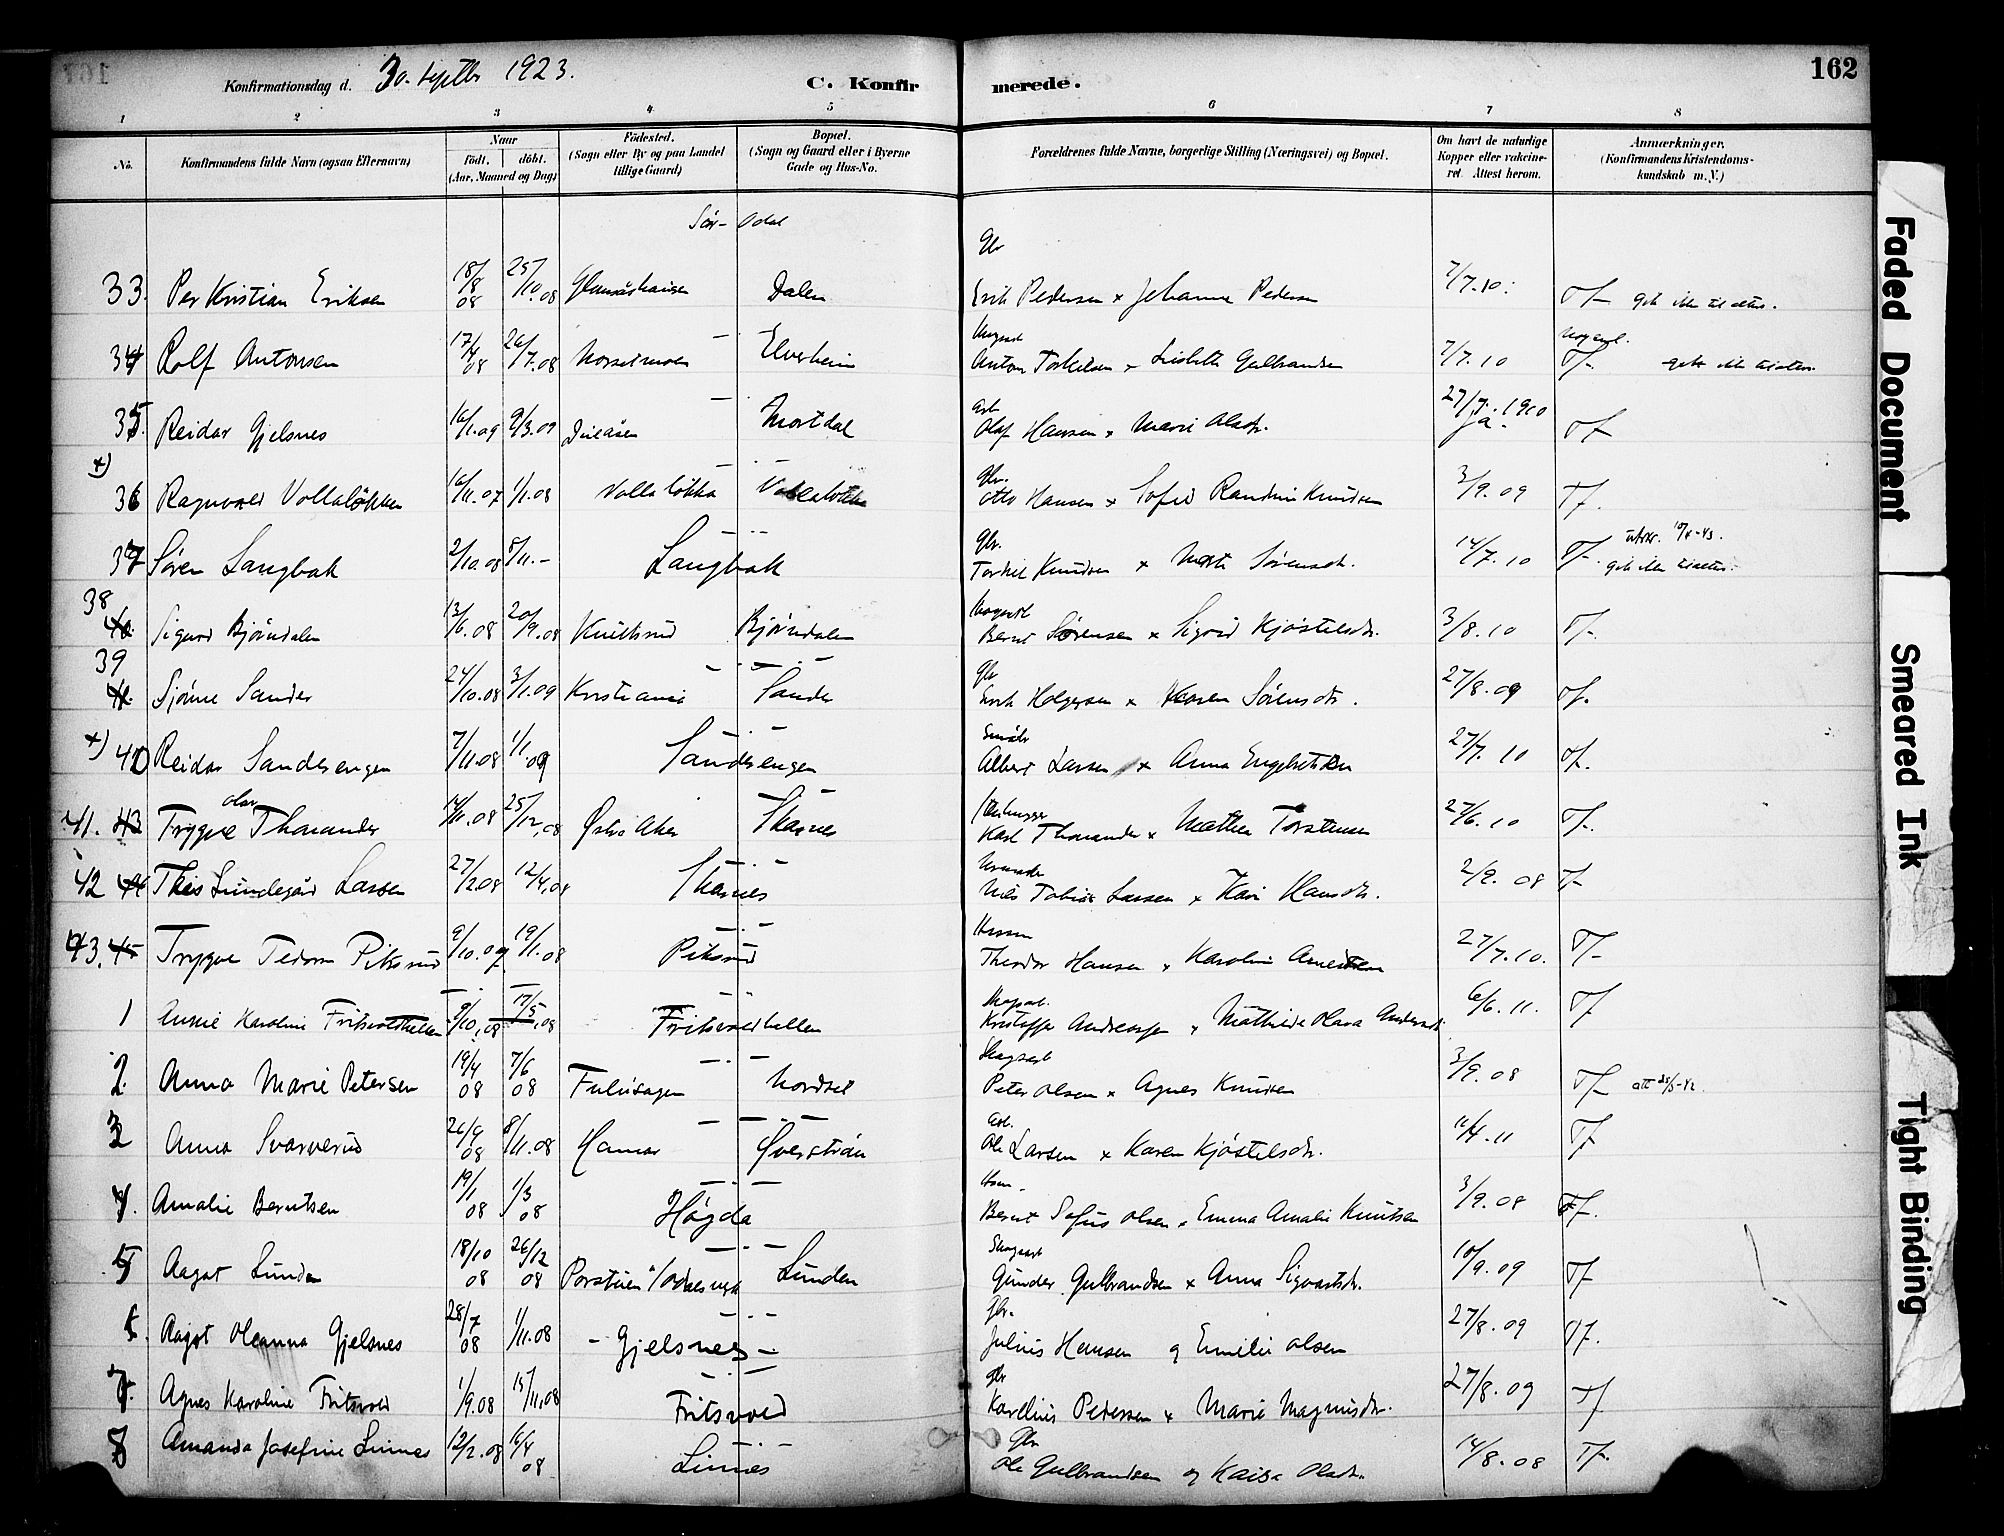 Konfirmationsdag d. 30. septbr 1923.
C. Konfirmerede.
162
1 2 3 4 5 6 7 8
No.
Konfirmandens fulde Navn (ogsaa Efternavn)
Naar
födt. döbt.
(Aar, Maaned og Dag)
Födested.
(Sogn eller By og paa Landet
tillige Gaard)
Bopæl.
(Sogn og Gaard eller i Byerne
Gade og Hus-No.
Forældrenes fulde Navne, borgerlige Stilling (Næringsvei) og Bopæl.
Om havt de naturlige
Kopper eller vakcine-
ret. Attest herom.
Anmærkninger.
(Konfirmandens Kristendoms-
kundskab m. V.)
Sör-Odal
33. Per Kristian Eriksen 18/8 08 25/10.08 Dalen Gbr Erik Pedersen x Johanna Pedersen 7/7.10. Tf
34 Rolf Antonsen 17/4 08 26/7.08 Elverheim Anton Torkelsen x Lisbeth Gulbrandsen 7/7.10 Tf
35. Reidar Gjelsnes 16/1.09 9/3.09 Mortdal Olaf Hansen x Marie Olsdtr. 27/7.1910 Ja. Tf
x) 36 Ragnvald Vollaløkken 16/11.07 1/1.08 Vollaløkka Vollaløkka Gbr. Otto Hansen x Sofie Randine Knudsen 3/9.09 Tf.
37 Søren Langbak 2/10.08 8/11.- Langbak Gbr. Torkel Knudsen x Marte Sørensdtr. 14/7.10 Tf
38 40. Sigurd Bjørndalen 13/6.08 20/9.08 Knuttsrud Bjørndalen Bernt Sørensen x Sigrid Kjøstelsdtr. 3/8.10 Tf.
39 41. Sjønne Sander 24/10.08 3/1.09 Kristiania Sander Gbr Erik Holgersen x Karen Sørensdtr. 27/8.09 Tf.
x) 40 Reidar Sandersengen 7/11.08 1/1.09 Sandersengen Albert Larsen x Anna Engebretsen 27/7.10 Tf.
41. 43 Trygve Olav Thorander 14/11.08 25/12.08 Østre Aker Skarnes Karl Thorander x Mathea Torstensen 27/6.10 Tf.
42 44 Lundegård Larsen 27/2 08 12/4.08 Skarnes Nils Tobias Larsen x Kari Hansdtr. 2/9.08 Tf
43. 45 Trygve Tedor Piksrud 9/10.07 19/1.08 Piksrud Theodor Hansen x Karoline Arnesen 27/7.10. Tf
1 Annie Karoline Fritsvoldhellen 9/10.08 17/5.08 Fritsvoldhellen Kristoffer Andreassen x Mathilde Olava Andersdtr. 6/6.11. Tf
2. Anna Marie Petersen 19/4 08 7/6 08 Fulusagen Nordset Skogsarb Peter Olsen x Agnes Knudsen 3/9.08 Tf att 28/5-42
3 Anna Svarverud 26/9 08 8/11.08 Hamar Øverstrøm Arb. Ole Larsen x Karen Kjøstelsdtr. 11/4.11 Tf
4. Amalie Berntsen 19/1 08 1/3 08 Høgda Bernt Sofus Olsen x Emma Amalie Knutsen 3/9.08 Tf.
5 Aagot Lunden 18/10 08 26/12 08 Porstuen Lunden Skogsarb Gunder Gulbrandsen x Anna Sigvartsdtr. 10/9.09 Tf
6. Aagot Oleanna Gjelsnes 28/7 08 1/11.08 - Gjelsnes - Gbr. Julius Hansen og Emilie Olsen 27/8.09 Tf.
7. Agnes Karoline Fritsvold 1/9.08 15/11.08 Fritsvold Gbr Karelius Pedersen x Marie Magnusdtr. 27/8.09 Tf
8 Amanda Josefine Linnes 12/2.08 16/4 08 Linnes Gbr Ole Gulbrandsen og Kaisa Olsdtr. 14/8.08 Tf.
Faded Document
Smeared Ink
Tight Binding